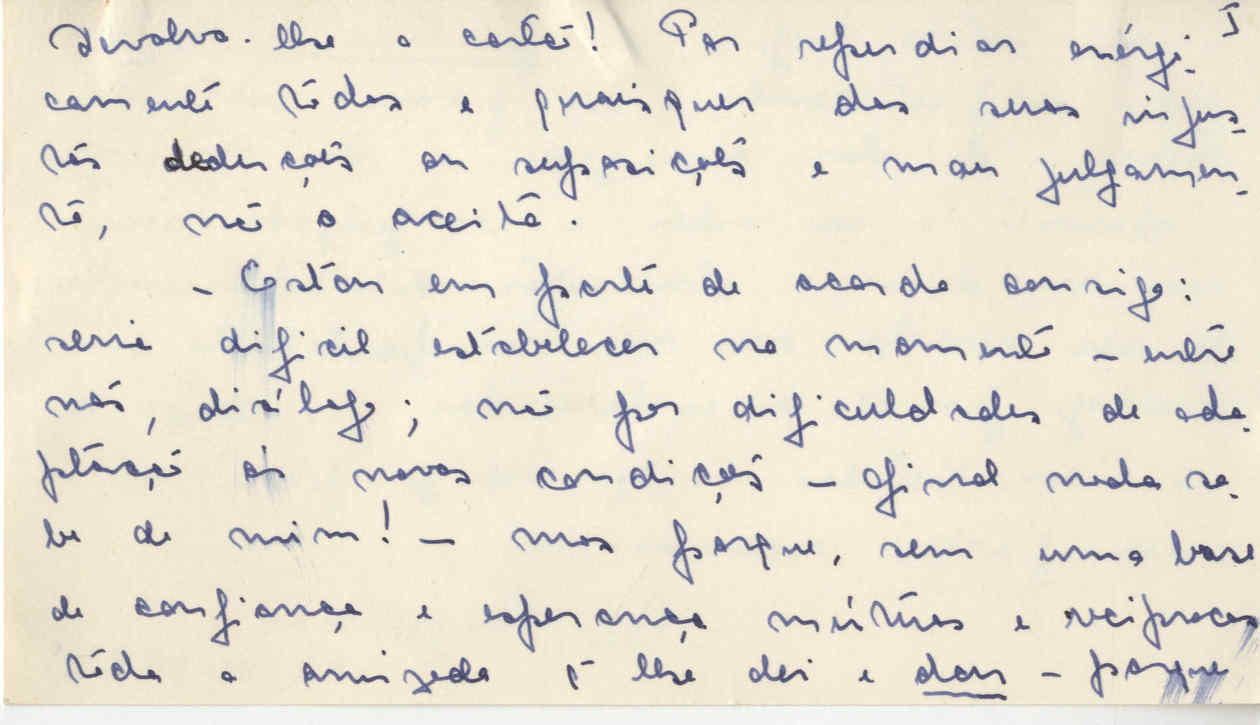 I
Devolvo-lhe a carta! Por repudiar enérgi-
camente tôdas e quaisquer das suas injus-
tas deduções ou suposições e mau julgamen-
to, não a aceito.
- Estou em parte de acordo consigo:
seria dificil estabelecer no momento - entre
nós, diálogo; não por dificuldades de ada-
ptação às novas condições - afinal nada sa-
be de mim! - mas porque, sem uma base
de confiança e esperança mútuas e reciprocas
tôda a amizade q̃ lhe dei e dou - porque